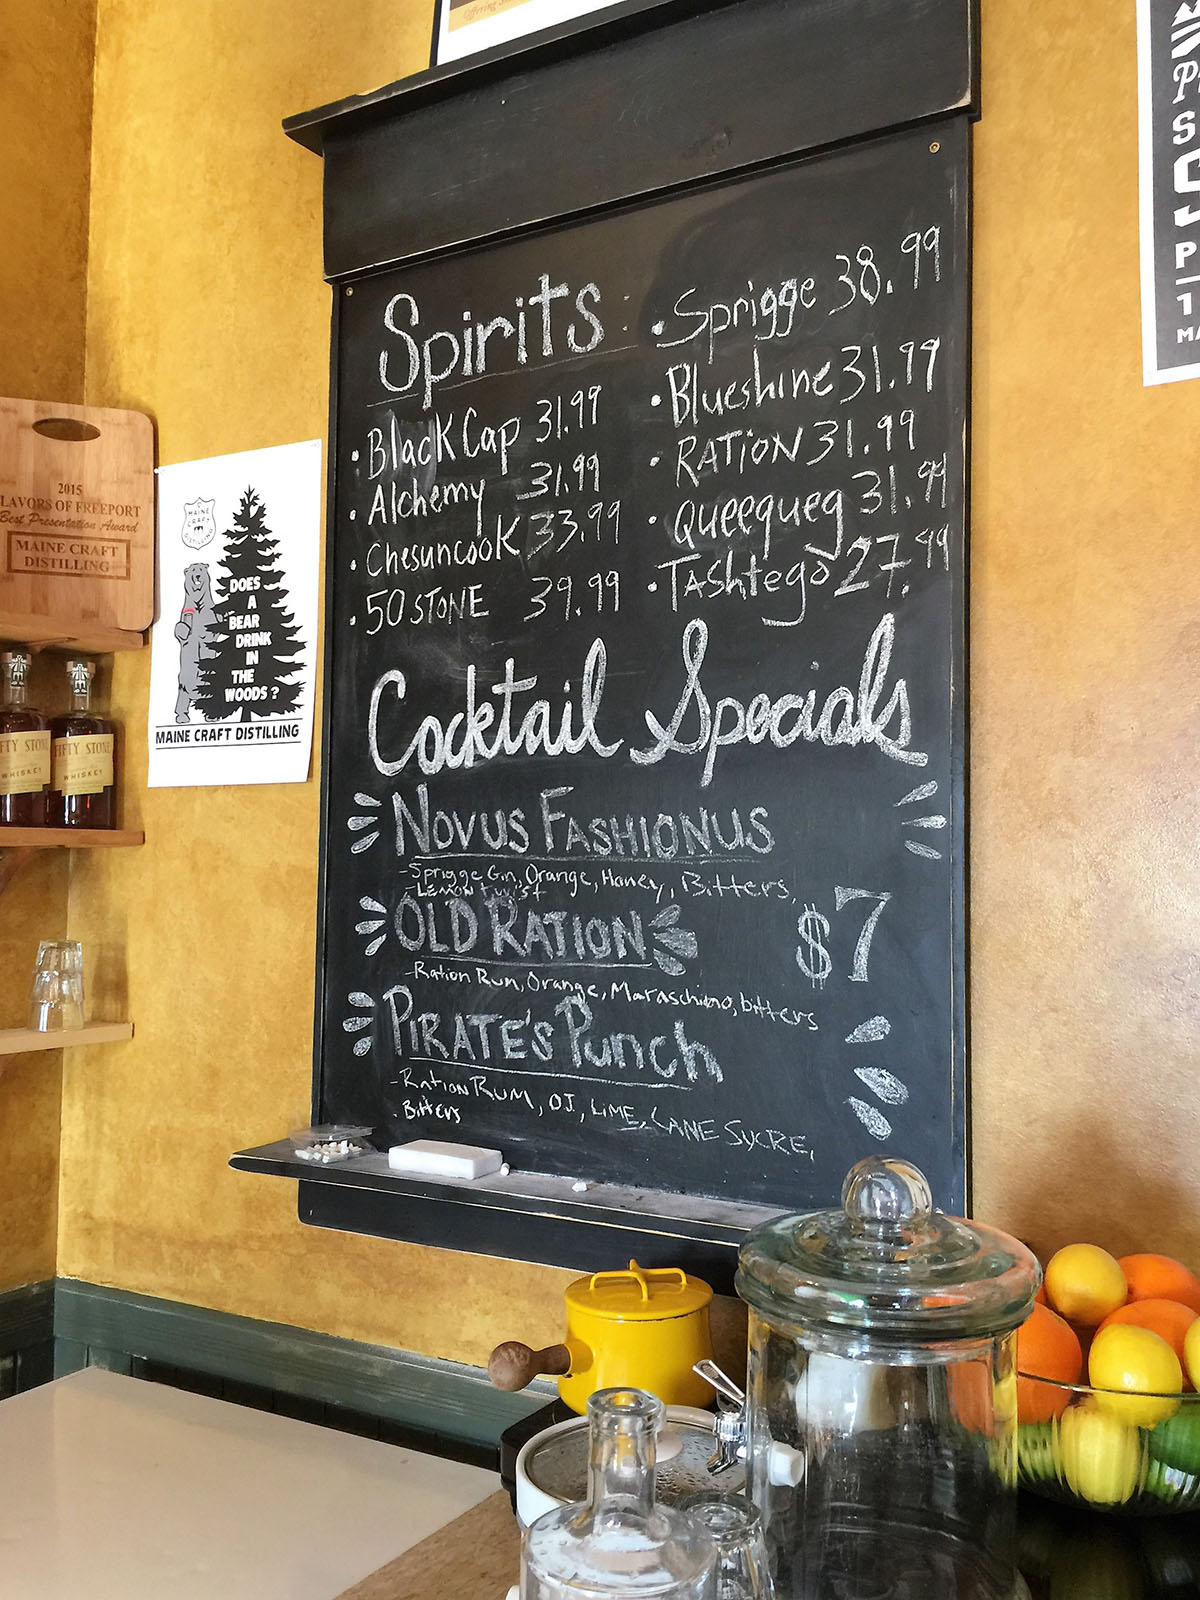 Spirits
• Black Cap 31.99
• Alchemy 31.99
• Chesuncook 33.99
• 50 STONE 39.99
• Sprigge 38.99
• Blueshine 31.99
• RATION 31.99
• Queequeg 31.99
• TAShtego 27.99
Cocktail Specials
NOVUS FASHIONUS
- Sprigge Gin, Orange, Honey, Bitters,
- LEMON twist
OLD RATION
- Ration Rum, Orange, Maraschino, bitters
$7
PIRATE'S Punch
- Ration RUM, OJ, LIME, CANE SUCRE,
. Bitters
2015
LAVORS OF FREEPORT
Best Presentation Award
MAINE CRAFT
DISTILLING
MAINE
CRAFT
DISTILLING
DOES
A
BEAR
DRINK
IN
THE
WOODS?
MAINE CRAFT DISTILLING
FTY STONE
WHISKEY
FIFTY STONE
WHISKEY
Offering
P
S
J
P
1
MA